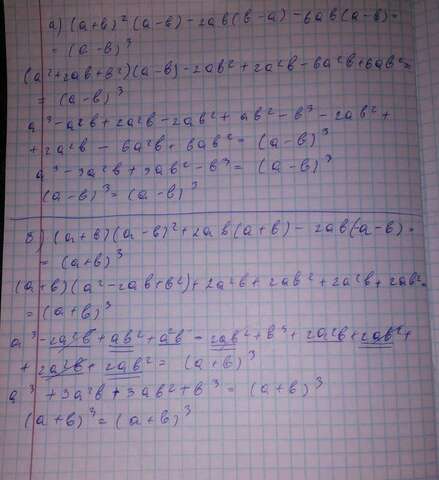 а) (a+b)²(a-b)-2ab(b-a)-6ab(a-b)=
= (a-b)³
(a²+2ab+b²)(a-b)-2ab²+2a²b-6a²b+6ab²=
= (a-b)³
a³-a²b+2a²b-2ab²+ab²-b³-2ab²+
+2a²b-6a²b+6ab²= (a-b)³
a³-3a²b+3ab²-b³= (a-b)³
(a-b)³=(a-b)³
в) (a+b)(a-b)²+2ab(a+b)-2ab(-a-b)=
= (a+b)³
(a+b)(a²-2ab+b²)+2a²b+2ab²+2a²b+2ab²=
= (a+b)³
a³-2a²b+ab²+a²b-2ab²+b³+2a²b+2ab²+
+2a²b+2ab²= (a+b)³
a³+3a²b+3ab²+b³= (a+b)³
(a+b)³=(a+b)³